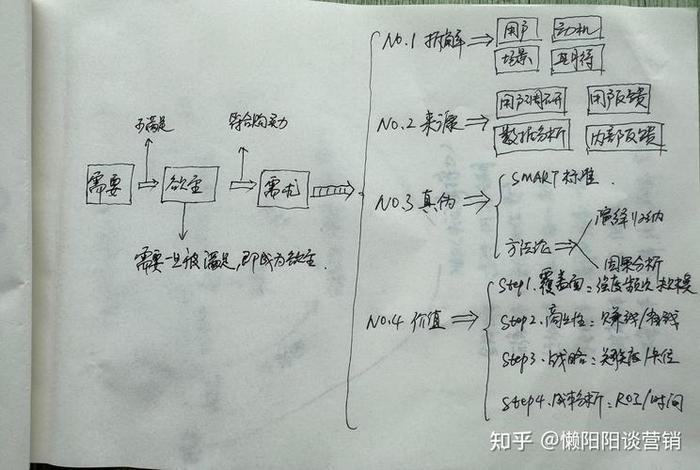 不满足
符合购买力
需要
欲望
需求
需要一旦被满足,即成为欲望.
NO.1 拆解
用户
动机
场景
期待
NO.2 来源
用户调研
用户反馈
数据分析
内部反馈
NO.3 真伪
SMART标准.
方法论
演绎归纳
因果分析
NO.4 价值
Step1.覆盖面:强度频次
Step2.商业性:赚钱/省钱
Step3.战略:关联度/卡位
Step4.成本分析:ROI/时间
知乎 @懒阳阳谈营销